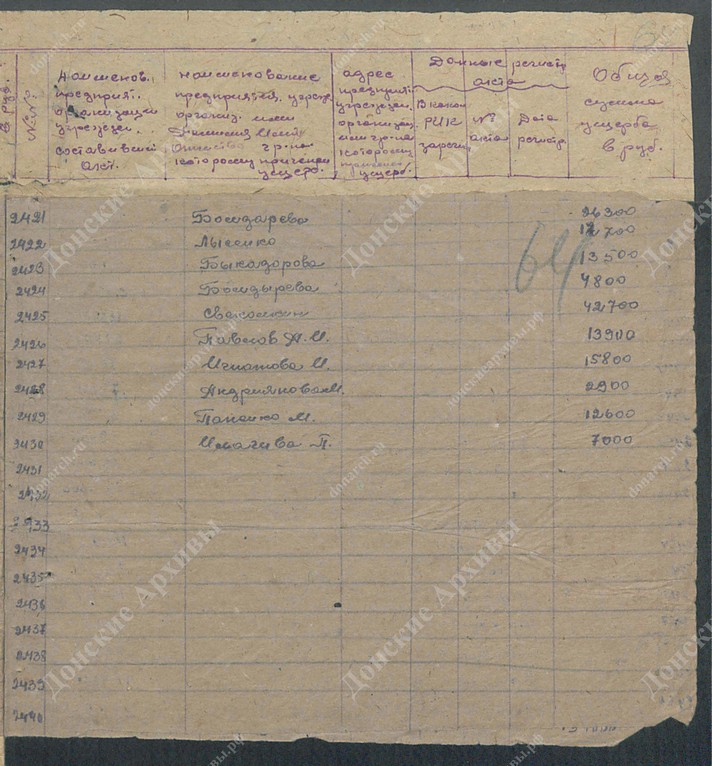 64
№№
Наименов.
предприят.
организации
учрежден.
составивший
акт.
наименование
предприятия, учреж.
организ. или
Фамилия Имя
Отчество гр-на
которому причинен
ущерб.
адрес
предприят.
учрежден.
организац.
или гр-на
которому
причинен
ущерб.
Данные регистр
акта
В каком
РИК
зарегис
№
акта
Дата
регистр.
Общая
сумма
ущерба
в руб.
2421 Бондарева 26300
2422 Лысенко 12700
2423 Быкадорова 13500
2424 Болдырева 4800
2425 42700
2426 Павлов А. И. 13900
2427 Игнатова И. 15800
2428 Андриянова М. 2900
2429 Паненко М. 12600
2430 П. 7000
2431
2432
2433
2434
2435
2436
2437
2438
2439
2440
64
Донские Архивы
donarch.ru
донскиеархивы.рф